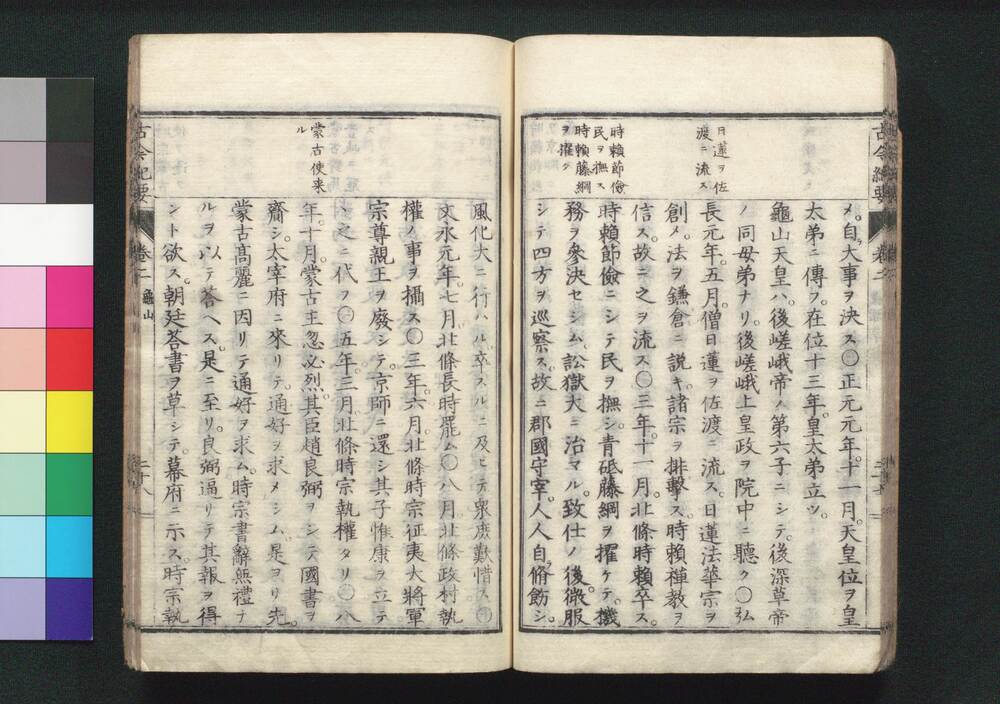 日蓮ヲ佐
渡ニ流ス
時賴節儉
民ヲ撫ス
時賴藤綱
ヲ擢ク
メ。自ラ大事ヲ決ス〇正元元年。十一月。天皇位ヲ皇
太弟ニ傳フ。在位十三年。皇太弟立ツ。
龜山天皇ハ。後嵯峨帝ノ第六子ニシテ。後深草帝
ノ同母弟ナリ。後嵯峨上皇政ヲ院中ニ聽ク〇弘
長元年。五月。僧日蓮ヲ佐渡ニ流ス。日蓮法華宗ヲ
創メ。法ヲ鎌倉ニ說キ。諸宗ヲ排擊ス。時賴禪敎ヲ
信ス。故ニ之ヲ流ス〇三年。十一月。北條時賴卒ス。
時賴節儉ニシテ民ヲ撫シ。青砥藤綱ヲ擢ケテ。機
務ヲ參決セシム。訟獄大ニ治マル。致仕ノ後。微服
シテ四方ヲ巡察ス。故ニ郡國守宰。人人自ラ脩飭シ。
古今紀要
卷二
二十七
蒙古使来
ル
風化大ニ行ハル。卒スルニ及ヒテ衆庶歎惜ス〇
文永元年。七月。北條長時罷ム〇八月北條政村執
權ノ事ヲ攝ス〇三年。六月。北條時宗征夷大將軍
宗尊親王ヲ廢シテ。京師ニ還シ其子惟康ヲ立テ
之ニ代フ〇五年。三月。北條時宗執權タリ〇八
年。十月。蒙古主忽必烈。其臣趙良弼ヲシテ國書ヲ
齎シ。太宰府ニ來リテ。通好ヲ求メシム。是ヨリ先。
蒙古高麗ニ因リテ通好ヲ求ム。時宗書辭無禮ナ
ルヲ以テ答ヘス。是ニ至リ。良弼逼リテ其報ヲ得
ント欲ス。朝廷荅書ヲ草シテ。幕府ニ示ス。時宗執
古今紀要
卷二
龜山
二十八